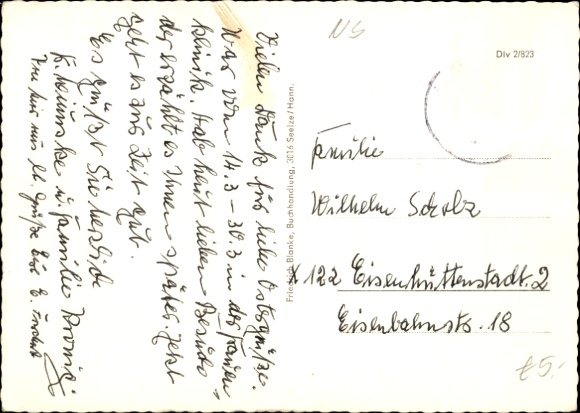 Vielen Dank für liebe Ostergrüße.
War vom 14.3 – 30.3 in der Frauen,
klinik. Hab heut lieben Besuch
der erzählt es Ihnen später. Jetzt
geht es zur Zeit gut.
Es grüßt Sie herzlich
K. u. Familie
ll. Grüße
NS
DIV 2/823
Friedrich Blanke, Buchhandlung, 3016 Seelze/Hann.
Familie
Wilhelm Scholz
X 122 Eisenhüttenstadt. 2
Eisenbahnstr. 18
£5,-